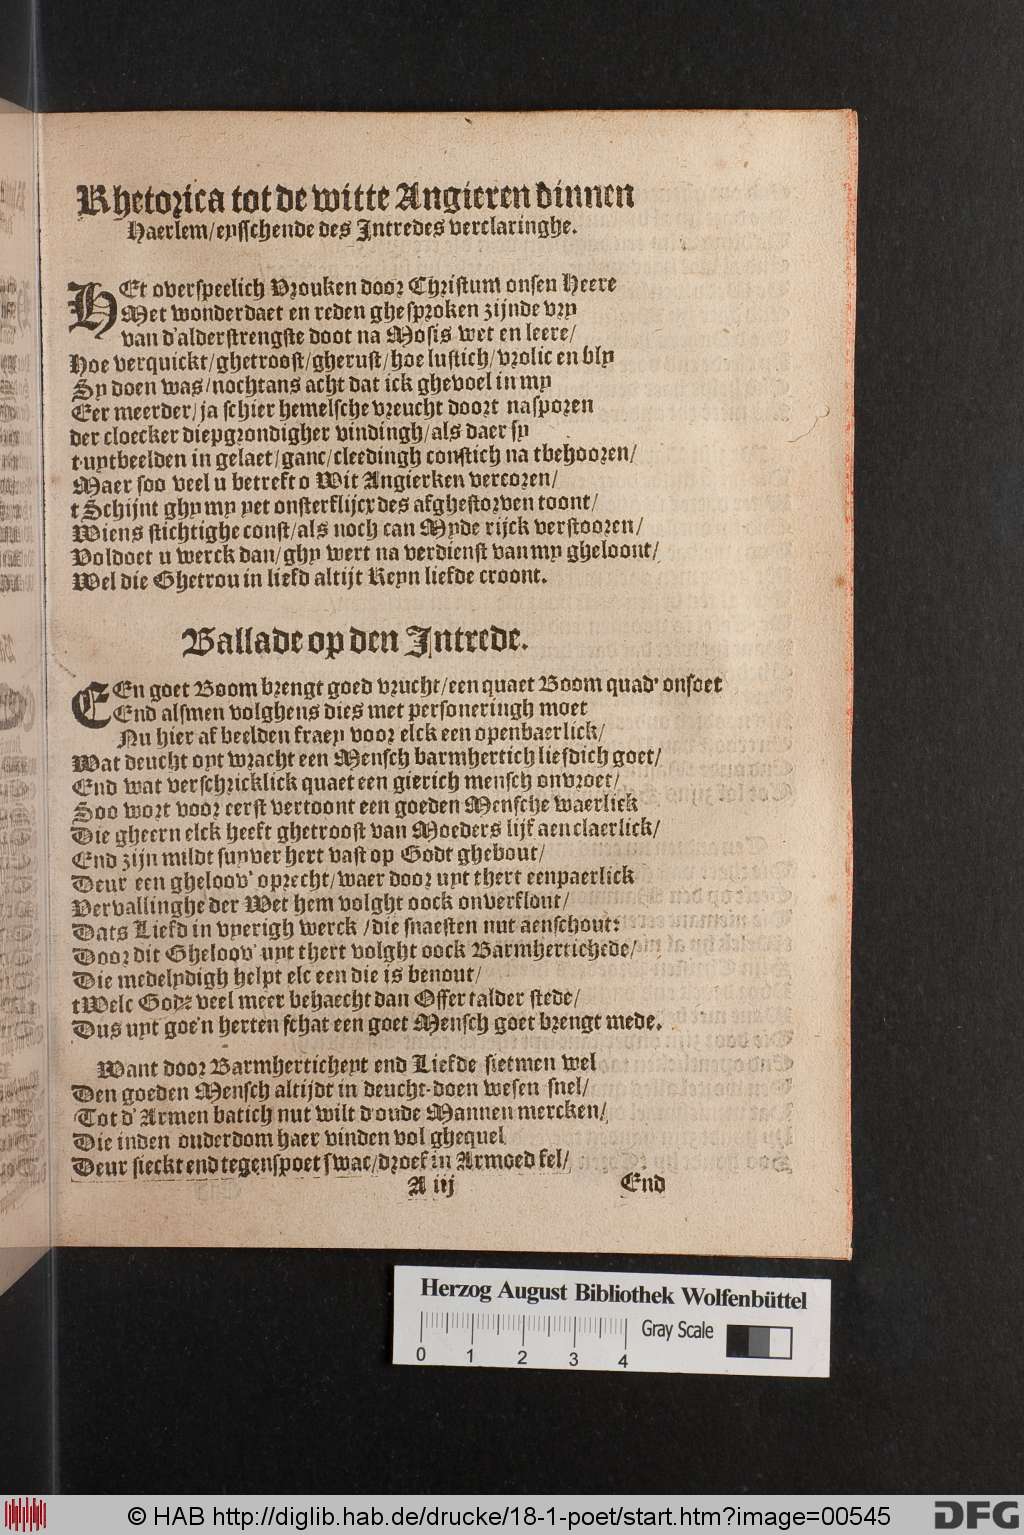 Rhetorica tot de witte Angieren binnen
Haerlem/eysschende des Intredes verclaringhe.
HEt overspeelich Vrouken door Christum onsen Heere
Met wonder daet en reden ghesproken zijnde vry
van d'alderstrengste doot na Mosis wet en leere/
Hoe verquickt/ghetroost/gherust/hoe lustich/vrolic en bly
Sy doen was/nochtans acht dat ick ghevoel in my
Eer meerder/ja schier hemelsche vreucht doort nasporen
der cloecker diepgrondigher vindingh/als daer sy
t'uytbeelden in gelaet/ganc/cleedingh constich na tbehooren/
Maer soo veel u betreft o Wit Angierken vercoren/
tSchijnt ghy my yet onsterflijcx des afghestorven toont/
Wiens stichtighe const/als noch can Myde rijck verstooren/
Voldoet u werck dan/ghy wert na verdienst van my gheloont/
Wel die Ghetrou in liefd altijt Reyn liefde croont.
Ballade op den Intrede.
EEn goet Boom brengt goed vrucht/een quaet Boom quad' onsoet
End alsmen volghens dies met personeringh moet
Nu hier af beelden fraey voor elck een openbaerlick/
Wat deucht oyt wracht een Mensch barmhertich liefdich goet/
End wat verschricklick quaet een gierich mensch onvroet/
Soo wort voor eerst vertoont een goeden Mensche waerlick
Die gheern elck heeft ghetroost van Moeders lijf aen claerlick/
End zijn mildt suyver hert vast op Godt ghebout/
Deur een gheloov' oprecht/waer door uyt thert eenpaerlick
Vervallinghe der Wet hem volght oock onverflout/
Dats Liefd in vyerigh werck/die snaesten nut aenschout:
Door dit Gheloov' uyt thert volght oock Barmhertichede/
Die medelydigh helpt elc een die is benout/
tWelc Godt veel meer behaecht dan Offer talder stede/
Dus uyt goe'n herten schat een goet Mensch goet brengt mede.
Want door Barmherticheyt end Liefde sietmen wel
Den goeden Mensch altijdt in deucht-doen wesen snel/
Tot d'Armen batich nut wilt d'oude Mannen mercken/
Die inden ouderdom haer vinden vol ghequel
Deur sieckt end tegenspoet swac/droef in Armoed fel/
A iij
End
Herzog August Bibliothek Wolfenbüttel
Gray Scale
0 1 2 3 4
© HAB http://diglib.hab.de/drucke/18-1-poet/start.htm?image=00545
DFG